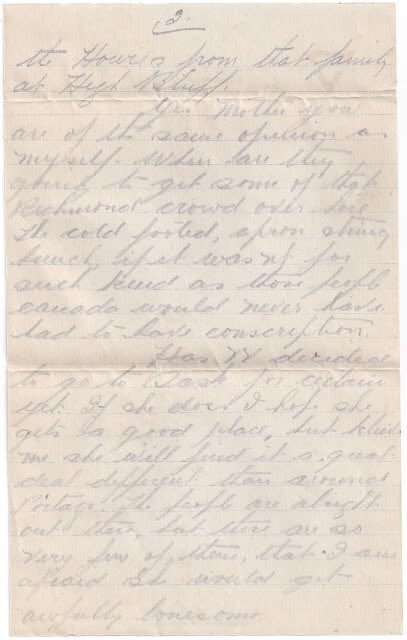 2.
the Howis from that family
at High Bluff.
Yes Mother you
are of the same opinion as
myself. When are they
going to get some of that
Richmond crowd over here
the cold footed, apron string
bunch, if it wasn't for
such kind as those people
Canada would never have
had to have conscription.
Has W decided
to go to Sask for certain
yet. If she does I hope she
gets a good place, but believe
me she will find it a great
deal different than around
Portage. The people are alright
out there, but there are so
very few of them, that I am
afraid she would get
awfully lonesome.